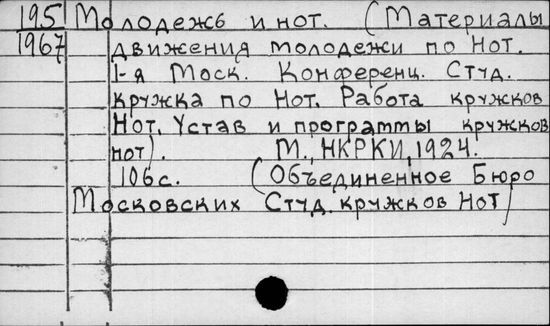 195 Молодежь и нот. (Материалы
1967 движения молодежи по Нот.
1-я Моск. Конференц. Студ.
кружка по Нот. Работа кружков
Нот. Устав и программы кружков
нот). М., НКРКИ, 1924.
106с. (Объединенное Бюро
Московских Студ. кружков Нот)